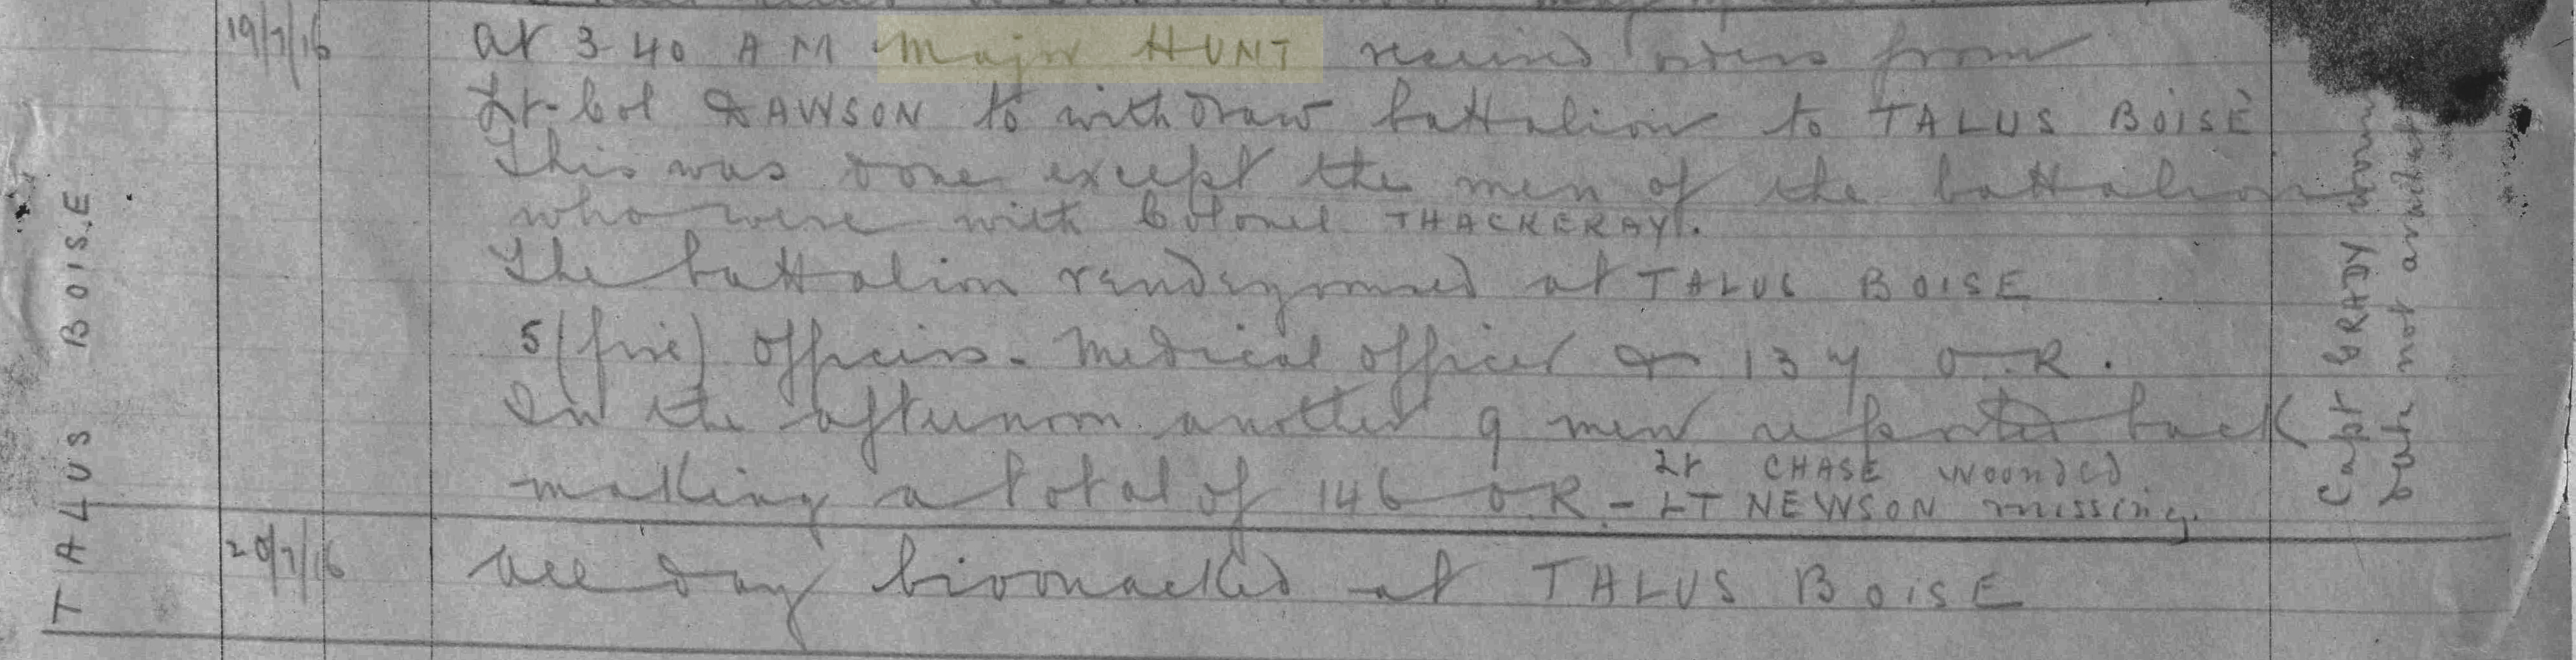 19/7/16
at 3-40 AM Major HUNT received orders from
Lt-Col DAWSON to withdraw battalion to TALUS BOISÉ
This was done except the men of the battalion
who were with Colonel THACKERAY.
The battalion rendezvoused at TALUS BOISE
5 (five) Officers - Medical Officer & 137 O.R.
In the afternoon another 9 men reported back
Lt CHASE wounded
making a total of 146 O.R. - LT NEWSON missing.
TALUS BOISE
Capt BRADY
but not
20/7/16
All day bivouacked at TALUS BOISE